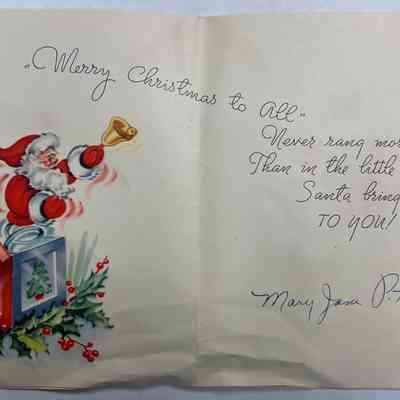 "Merry Christmas to all"
Never rang mor
Than in the little
Santa bring
TO YOU!
Mary Jane P.